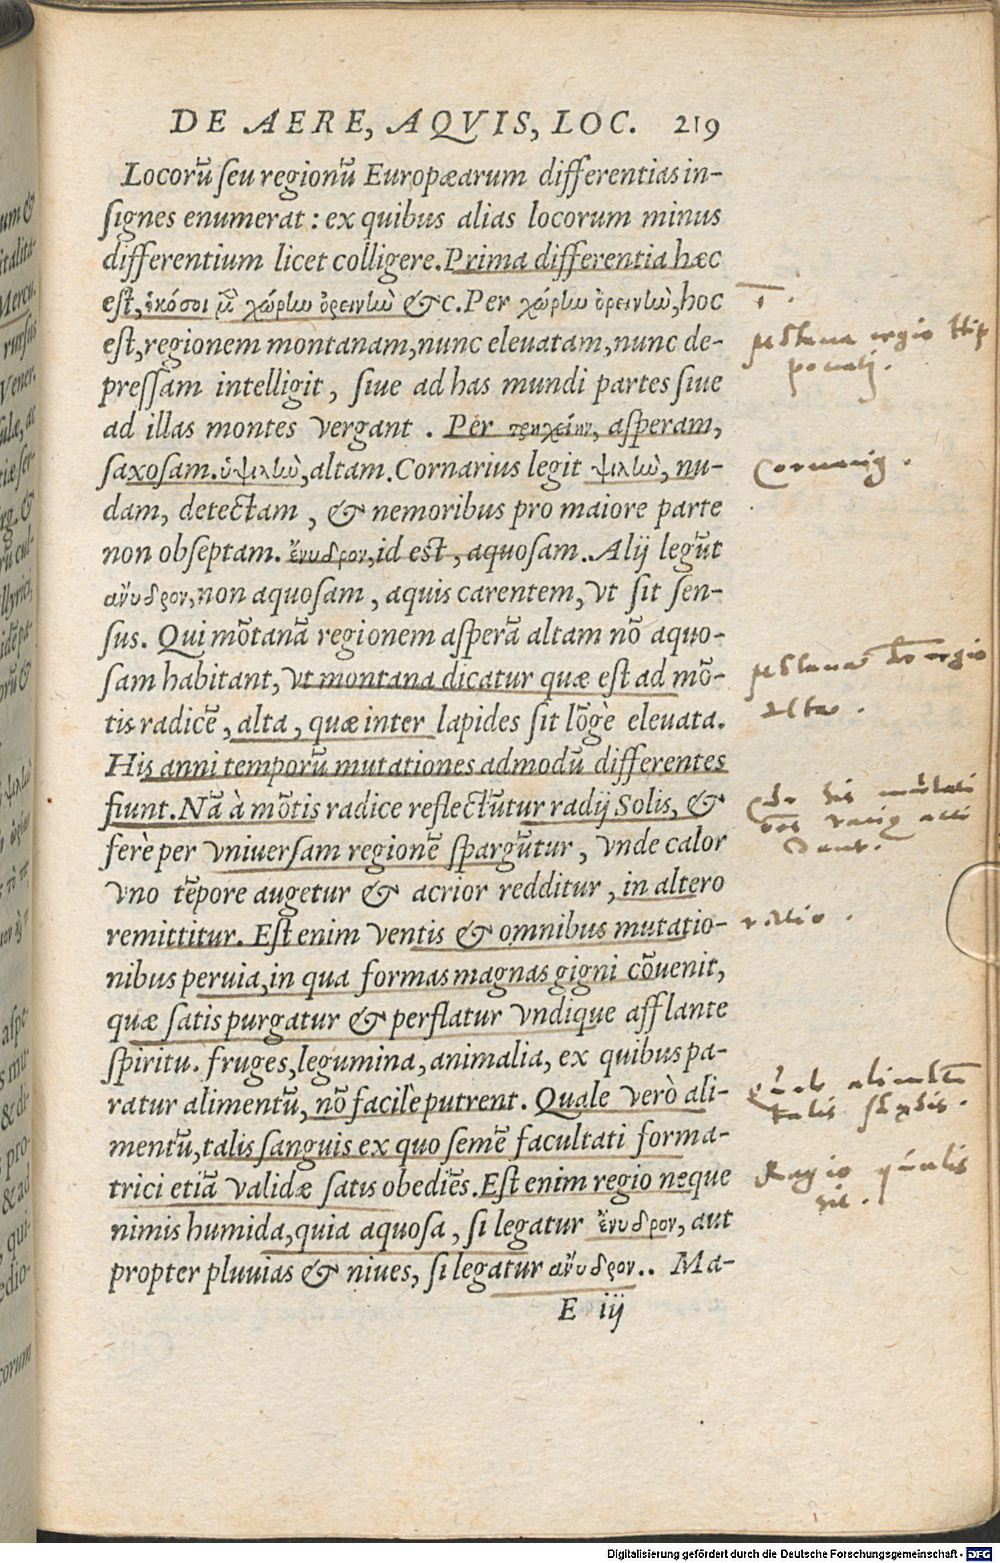 DE AERE, AQVIS, LOC. 219
Locorũ seu regionũ Europæarum differentias in-
signes enumerat: ex quibus alias locorum minus
differentium licet colligere. Prima differentia hæc
est, ὁκόσοι μ̃ χώρην ὀρεινὴν &c. Per χώρην ὀρεινὴν, hoc
est, regionem montanam, nunc eleuatam, nunc de-
pressam intelligit, siue ad has mundi partes siue
ad illas montes vergant. Per τρηχείην, asperam,
saxosam. ὑψηλὴν, altam. Cornarius legit ψιλὴν, nu-
dam, detectam, & nemoribus pro maiore parte
non obseptam. ἔνυδρον, id est, aquosam. Alij legũt
ἄνυδρον, non aquosam, aquis carentem, vt sit sen-
sus. Qui mõtanã regionem asperã altam nõ aquo-
sam habitant, vt montana dicatur quæ est ad mõ-
tis radicẽ, alta, quæ inter lapides sit lõgè eleuata.
His anni temporũ mutationes admodũ differentes
fiunt. Nã à mõtis radice reflectũtur radij Solis, &
ferè per vniuersam regionẽ spargũtur, vnde calor
vno tẽpore augetur & acrior redditur, in altero
remittitur. Est enim ventis & omnibus mutatio-
nibus peruia, in qua formas magnas gigni cõuenit,
quæ satis purgatur & perflatur vndique afflante
spiritu. fruges, legumina, animalia, ex quibus pa-
ratur alimentũ, nõ facilè putrent. Quale verò ali-
mentũ, talis sanguis ex quo semẽ facultati forma-
trici etiã validæ satis obediẽs. Est enim regio neque
nimis humida, quia aquosa, si legatur ἔνυδρον, aut
propter pluuias & niues, si legatur ἄνυδρον.. Ma-
E iij
Cornarius.
alta.
ratio.
Regio qualis
sit.
Digitalisierung gefördert durch die Deutsche Forschungsgemeinschaft - DFG